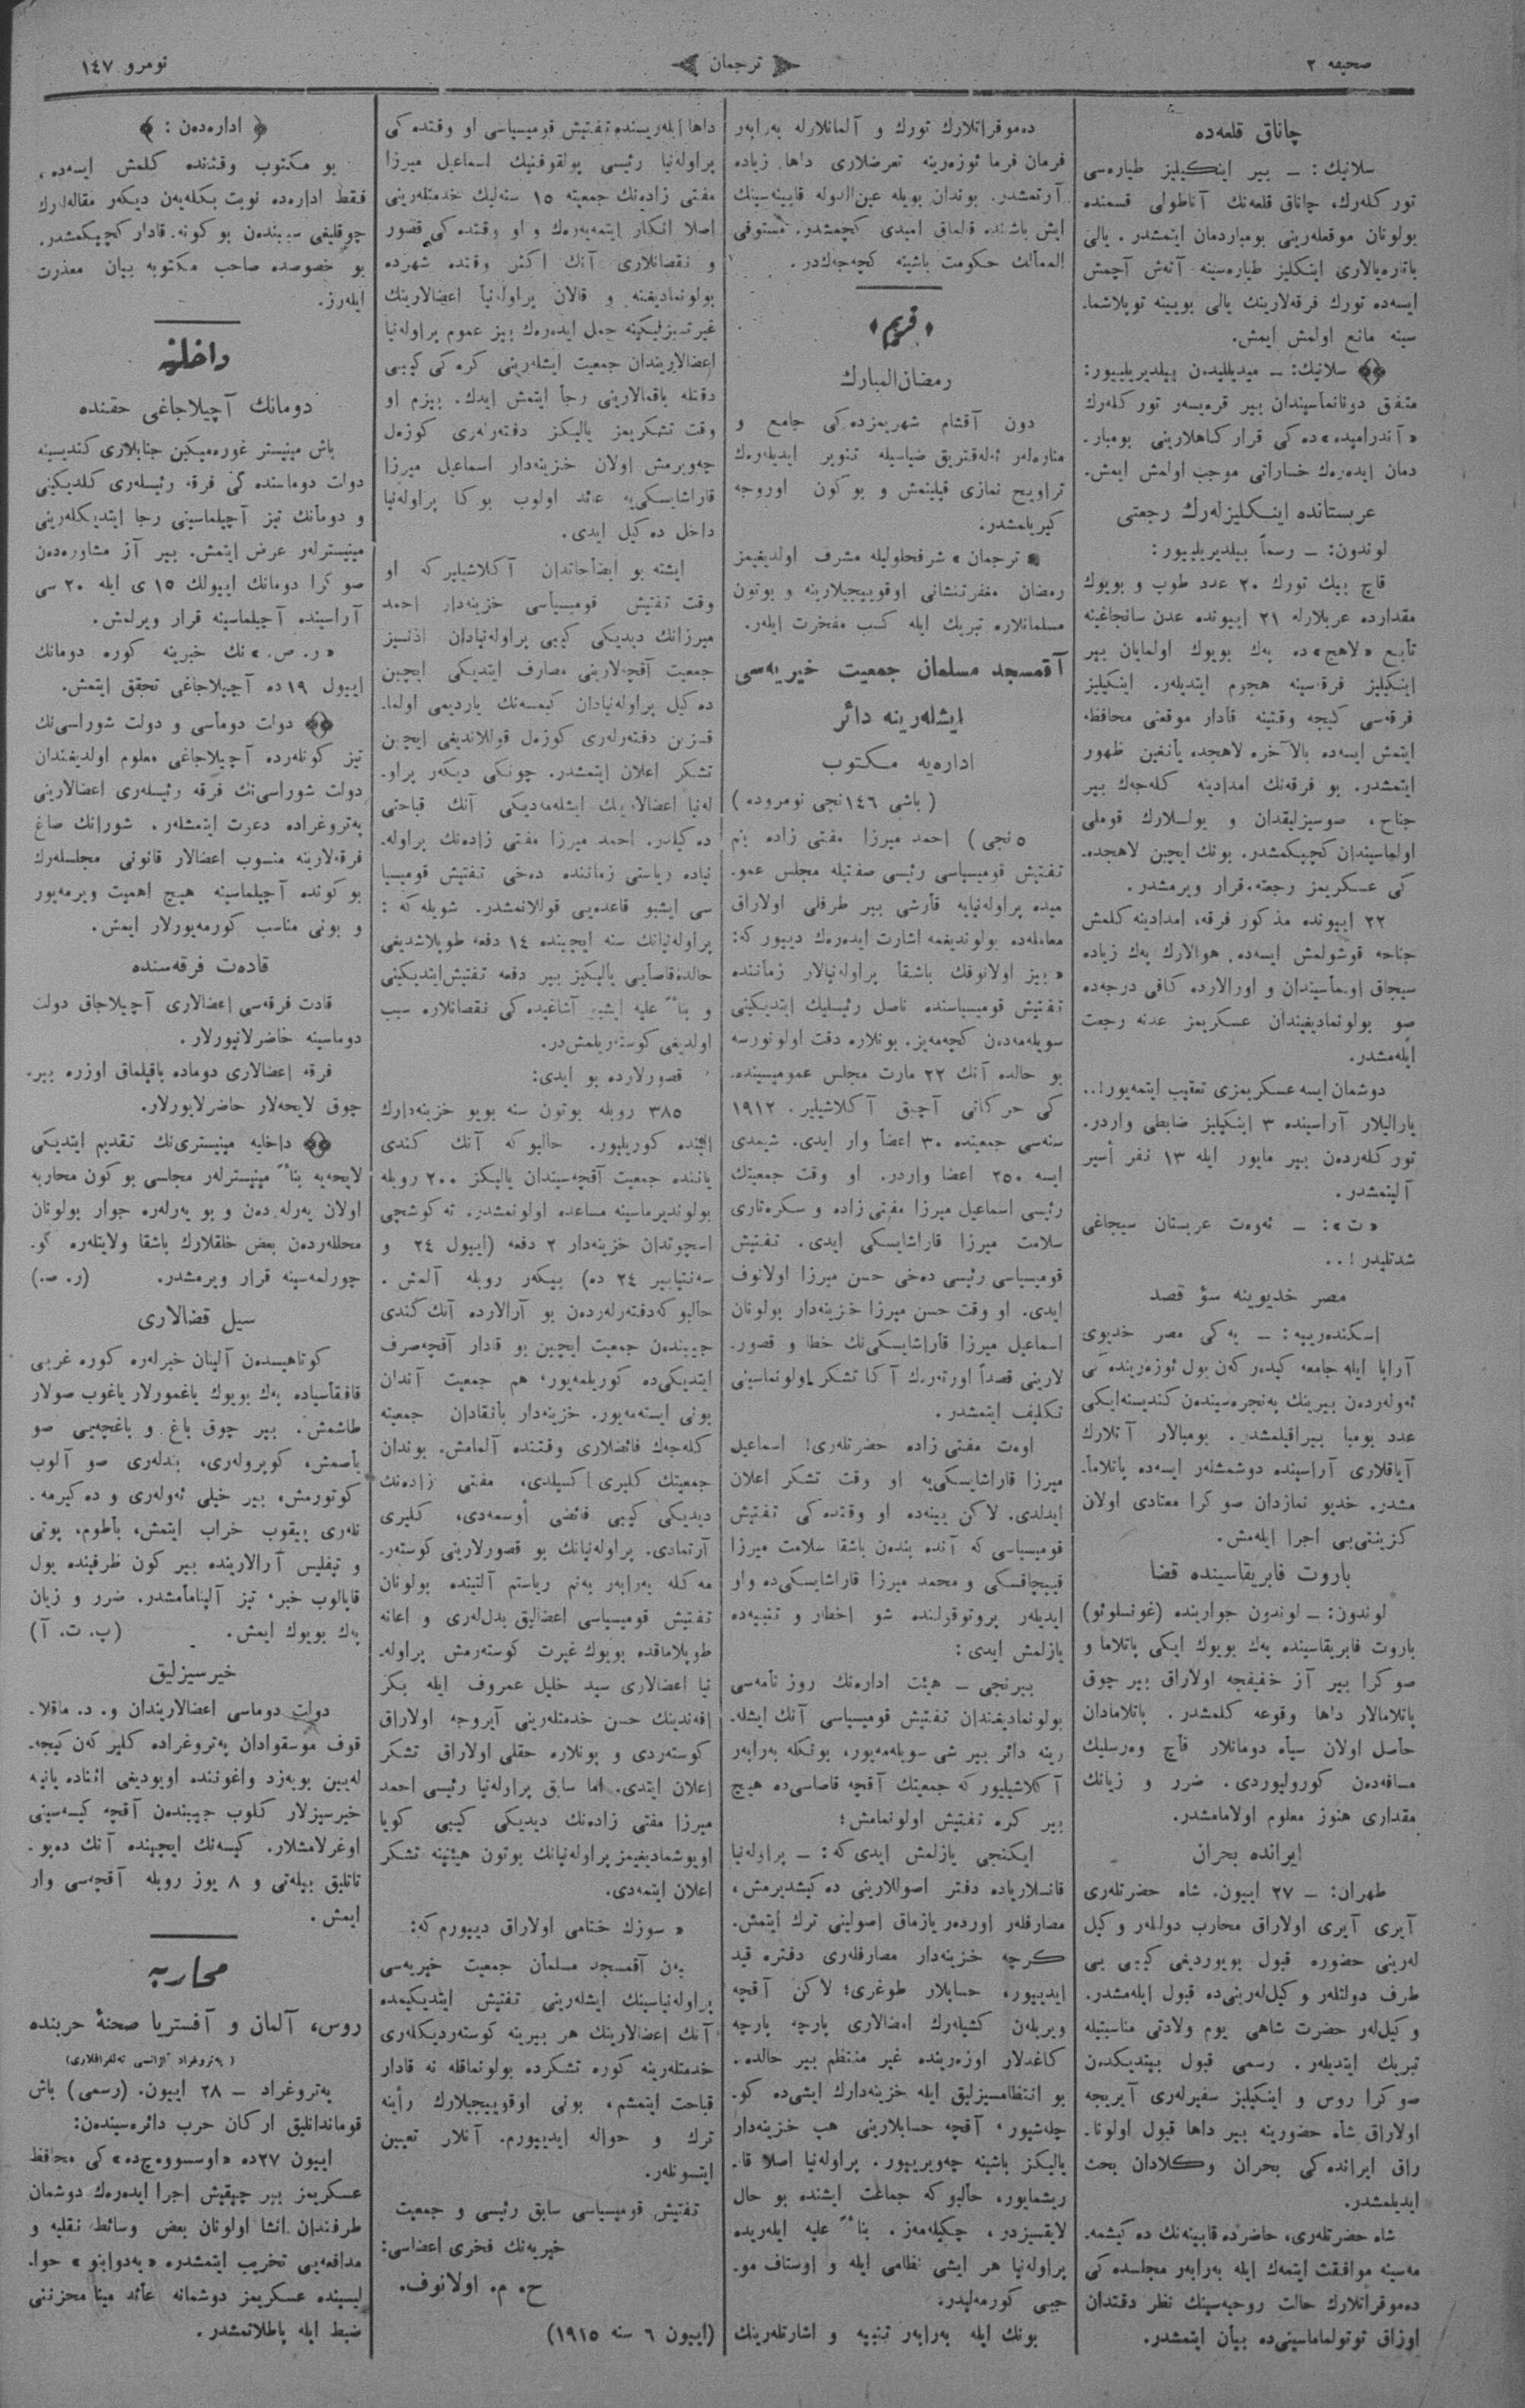 صحیفه ٢
ترجمان
نومرو ١٤٧
چاناق قلعه‌ده
سلانیك: ــ بیر اینكیلیز طیاره‌سی
تورکلەرك، چاناق قلعەنك آناطولی قسمنده
بولونان موقعلەرینی بومباردمان ایتمشدر. یالی
باتاریالاری اینكلیز طیاره‌سینه آتەش آچمش
ایسەده تورك فرقەلارینك یالی بوینه توپلاشما-
سینه مانع اولمش ایمش.
سلانیك: ــ میدیللیدن بیلدیریلیيور:
متفق دونانماسیندان بیر قرەیسەر تورکلەرك
«آندرامید» دەکی قرارکاهلارینی بومبار-
دمان ایدەرەك خساراتی موجب اولمش ایمش.
عربستانده اینكلیزلەرك رجعتی
لوندون: ــ رسماً بیلدیریلیيور:
قاچ بیك تورك ٢٠ عدد طوب و بویوك
مقدارده عربلارله ٢١ ایيونده عدن سانجاغینه
تابع «لاهج» ده یەك بویوك اولمایان بیر
اینكیلیز فرقەسینه هجوم ایتدیلەر. اینكیلیز
فرقەسی كیجه وقتینه قادار موقعنی محافظه
ایتمش ایسەده بالاخره لاهجده یانغین ظهور
ایتمشدر. بو فرقەنك امدادینه كلەجك بیر
جناح، صوسیزلیقدان و یوللارك قوملی
اولماسیندان كچیكمشدر. بونك ایچین لاهجده-
كی عسكریمز رجعته قرار ویرمشدر.
٢٢ ایيونده مذكور فرقه، امدادینه كلمش
جناحه قوشولمش ایسەده، هوالارك یەك زیاده
سیجاق اولماسیندان و اورالارده كافی درجەده
صو بولونمادیغیندان عسكریمز عدنه رجعت
ایلەمشدر.
دوشمان ایسه عسكریمزی تعقیب ایتمەیور!..
یارالیلار آراسینده ٣ اینكیلیز ضابطی واردر.
تورکلەردەن بیر مایور ایله ١٣ نفر أسیر
آلینمشدر.
«ت»: ــ ئەوەت عربستان سیجاغی
شدتلیدر!..
مصر خدیوینه سؤ قصد
اسكندەرییه: ــ یەكی مصر خدیوی
آرابا ایله جامعه كیدەركەن یول ئوزەرینده كی
ئەولەردەن بیرینك پەنجرەسیندەن كندیسنه ایكی
عدد بومبا بیراقیلمشدر. بومبالار آتلارك
آیاقلاری آراسینده دوشمشلەر ایسەده پاتلاما-
مشدر. خدیو نمازدان صوكرا معتادی اولان
كزینتی‌یی اجرا ایلەمش.
باروت فابریقاسینده قضا
لوندون: ــ لوندون جوارینده (غونسلوئو)
باروت فابریقاسینده یەك بویوك ایكی پاتلاما و
صوكرا بیر آز خفیفجه اولاراق بیر چوق
پاتلامالار داها وقوعه كلمشدر. پاتلامادان
حاصل اولان سیاه دومانلار قاچ وەرسلیك
مسافەدەن كورولیوردی. ضرر و زیانك
مقداری هنوز معلوم اولامامشدر.
ایرانده بحران
طهران: ــ ٢٧ ایيون. شاه حضرتلەری
آیری آیری اولاراق محارب دوللەر وكیل
لەرینی حضوره قبول بویوردیغی كیبی بی
طرف دولتلەر وكیللەرینی‌ده قبول ایلەمشدر.
وكیل‌لەر حضرت شاهی یوم ولادتی مناسبتیله
تبریك ایتدیلەر. رسمی قبول بیتدیكدەن
صوكرا روس و اینكیلیز سفیرلەری آیریجه
اولاراق شاه حضورینه بیر داها قبول اولونا-
راق ایرانده كی بحران وكلادان بحث
ایدیلمشدر.
شاه حضرتلەری، حاضرده قابینەنك دەكیشمە-
مەسینه موافقت ایتمەك ایله بەرابەر مجلسده كی
دەموقراتلارك حالت روحیەسینك نظر دقتدان
اوزاق توتولماماسینی‌ده بیان ایتمشدر.
دەموقراتلارك تورك و آلمانلارله بەرابەر
فرمان فرما ئوزەرینه تعرضلاری داها زیاده
آرتمشدر. بوندان بویله عین‌الدوله قابینەسینك
ایش باشنده قالماق امیدی كچمشدر. مستوفی
الممالك حكومت باشینه كچەجەكدر.
﴿قریم﴾
رمضان المبارك
دون آقشام شهریمزدەكی جامع و
منارەلەر ئەلەقتریق ضیاسیله تنویر ایدیلەرەك
تراویح نمازی قیلینمش و بوكون اوروجه
كیریلمشدر.
«ترجمان» شرفحلولیله مشرف اولدیغیمز
رمضان مغفرتنشانی اوقوییجیلارینه و بوتون
مسلمانلاره تبریك ایله كسب مفخرت ایلەر.
آقمسجد مسلمان جمعیت خیریەسی
ایشلەرینه دائر
ادارەیه مكتوب
(باشی ١٤٦نجی نومروده)
٥نجی) احمد میرزا مفتی زاده بنم
تفتیش قومیسیاسی رئیسی صفتیله مجلس عمو-
میده پراولەنیایه قارشی بیر طرفلی اولاراق
معاملەده بولوندیغمه اشارت ایدەرەك دییور كه:
«بیز اولانوفك باشقا پراولەنیالار زماننده
تفتیش قومیسیاسنده ناصل رئیسلیك ایتدیكینی
سویلەمەدەن كچەمەیز. بونلاره دقت اولونورسه
بو حالده آنك ٢٢ مارت مجلس عمومیسینده-
كی حركاتی آچیق آكلاشیلیر. ١٩١٢
سنەسی جمعیتده ٣٠ اعضا وار ایدی. شیمدی
ایسه ٢٥٠ اعضا واردر. او وقت جمعیتك
رئیسی اسماعیل میرزا مفتی زاده و سكرەتاری
سلامت میرزا قاراشایسكی ایدی. تفتیش
قومیسیاسی رئیسی دەخی حسن میرزا اولانوف
ایدی. او وقت حسن میرزا خزینەدار بولونان
اسماعیل میرزا قاراشایسكی‌نك خطا و قصور-
لارینی قصداً اورتەرەك آكا تشكر اولونماسینی
تكلیف ایتمشدر.
اوەت مفتی زاده حضرتلەری! اسماعیل
میرزا قاراشایسكی‌یه او وقت تشكر اعلان
ایدلدی. لاكن یینەده او وقتده كی تفتیش
قومیسیاسی كه آنده بندەن باشقا سلامت میرزا
قیپچاقسكی و محمد میرزا قاراشایسكی‌ده وار
ایدیلەر پروتوقولنده شو اخطار و تنبیەده
یازلمش ایدی:
بیرنجی ــ هیئت ادارەنك روز نامەسی
بولونمادیغندان تفتیش قومیسیاسی آنك ایشلە-
رینه دائر بیر شی سویلەمەیور، بونكله بەرابەر
آكلاشیلیور كه جمعیتك آقچه قاصاسی‌ده هیچ
بیر كره تفتیش اولونمامش؛
ایكنجی یازلمش ایدی كه: ــ پراولەنیا
قانسلاریاده دفتر اصوللارینی دەكیشدیرمش،
مصارفلەر اوردەر یازماق اصولینی ترك ایتمش.
كرچه خزینەدار مصارفلەری دفتره قید
ایدییور، حسابلار طوغری؛ لاكن آقچه
ویریلەن كشیلەرك امضالاری پارچه پارچه
كاغدلار اوزەرینده غیر منتظم بیر حالده.
بو انتظامسیزلیق ایله خزینەدارك ایشی‌ده كو-
چلەشیور، آقچه حسابلارینی هب خزینەدار
یالیكز باشینه چەویرییور. پراولەنیا اصلا قا-
ریشمایور، حالبوكه جماعت ایشنده بو حال
لایقسیزدر، چكیلەمەز. بناءً علیه ایلەریده
پراولەنیا هر ایشی نظامی ایله و اوستاف مو-
جبی كورمەلیدر.
بونك ایله بەرابەر تنبیه و اشارتلەرینك
داها ایلەریسنده تفتیش قومیسیاسی او وقتده كی
پراولەنیا رئیسی پولقوفنیك اسماعیل میرزا
مفتی زادەنك جمعیته ١٥ سنەلیك خدمتلەرینی
اصلا انكار ایتمەیەرەك و او وقتده كی قصور
و نقصانلاری آنك اكثر وقتده شهرده
بولونمادیغنه و قالان پراولەنیا اعضالارینك
غیرتسزلیكینه حمل ایدەرەك بیز عموم پراولەنیا
اعضالاریندان جمعیت ایشلەرینی كرەكی كیبی
دقتله باقمالارینی رجا ایتمش ایدك. بیزم او
وقت تشكریمز یالیكز دفتەرلەری كوزەل
چەویرمش اولان خزینەدار اسماعیل میرزا
قاراشایسكی‌یه عائد اولوب بوكا پراولەنیا
داخل دەكیل ایدی.
ایشته بو ایضاحاتدان آكلاشیلیر كه او
وقت تفتیش قومیسیاسی خزینەدار احمد
میرزانك دیدیكی كیبی پراولەنیادان اذنسیز
جمعیت آقچەلارینی مصارف ایتدیكی ایچین
دەكیل پراولەنیادان كیمسەنك یاردیمی اولما-
قسزین دفتەرلەری كوزەل قوللاندیغی ایچین
تشكر اعلان ایتمشدر. چونكی دیكەر پراو-
لەنیا اعضالارینك ایشلەمەدیكی آنك قباحتی
دەكیلدر. احمد میرزا مفتی زادەنك پراولە-
نیاده ریاستی زماننده دەخی تفتیش قومیسیا
سی ایشبو قاعدەیی قوللانمشدر. شویله كه:
پراولەنیانك سنه ایچینده ١٤ دفعه طوپلاشدیغی
حالده قاصایی یالیكز بیر دفعه تفتیش ایتدیكینی
و بناءً علیه ایشبو آشاغیده كی نقصانلاره سبب
اولدیغی كوستەریلمش‌در.
قصورلارده بو ایدی:
٣٨٥ روبله بوتون سنه بویو خزینەدارك
الینده كوریلیور. حالبوكه آنك كندی
یاننده جمعیت آقچەسیندان یالیكز ٢٠٠ روبله
بولوندیرماسینه مساعده اولونمشدر. تەكوشچی
اسچوتدان خزینەدار ٢ دفعه (ایيول ٢٤ و
سەنتیابیر ٢٤ ده) بیكەر روبله آلمش.
حالبوكه دفتەرلەردەن بو آرالارده آنك كندی
جیبندەن جمعیت ایچین بو قادار آقچه صرف
ایتدیكی‌ده كوریلمەیور، هم جمعیت آندان
بونی ایستەمەیور. خزینەدار بانقادان جمعیته
كلەجەك فائضلاری وقتنده آلمامش. بوندان
جمعیتك كلیری اكسیلدی، مفتی زادەنك
دیدیكی كیبی فائضی أوسمەدی، كلیری
آرتمادی. پراولەنیانك بو قصورلارینی كوستەر-
مەكله بەرابەر یەنم ریاستم آلتینده بولونان
تفتیش قومیسیاسی اعضالیق بدل‌لەری و اعانه
طوپلاماقده بویوك غیرت كوستەرمش پراولە-
نیا اعضالاری سید خلیل عمروف ایله بكر
افەندینك حسن خدمتلەرینی آیروجه اولاراق
كوستەردی و بونلاره حقلی اولاراق تشكر
اعلان ایتدی. اما سابق پراولەنیا رئیسی احمد
میرزا مفتی زادەنك دیدیكی كیبی كویا
اویوشمادیغیمز پراولەنیانك بوتون هیئتینه تشكر
اعلان ایتمەدی.
«سوزك ختامی اولاراق دییورم كه:
بەن آقمسجد مسلمان جمعیت خیریەسی
پراولەنیاسینك ایشلەرینی تفتیش ایتدیكیمده
آنك اعضالارینك هر بیرینه كوستەردیكلەری
خدمتلەرینه كوره تشكرده بولونماقله نه قادار
قباحت ایتمشم، بونی اوقوییجیلارك رأینه
ترك و حواله ایدییورم. آنلار تعیین
ایتسونلەر.
تفتیش قومیسیاسی سابق رئیسی و جمعیت
خیریەنك فخری اعضاسی:
ح. م. اولانوف.
(ایيون ٦ سنه ١٩١٥)
﴿ادارەدەن:﴾
بو مكتوب وقتنده كلمش ایسەده،
فقط ادارەده نوبت بكلەیەن دیكەر مقالەلارك
چوقلیغی سببندەن بوكونه قادار كچیكمشدر.
بو خصوصده صاحب مكتوبه بیان معذرت
ایلەرز.
داخلیه
دومانك آچیلاجاغی حقنده
باش مینیستر غورەمیكین جنابلاری كندیسینه
دولت دوماسنده كی فرقه رئیسلەری كلدیكینی
و دومانك تیز آچیلماسینی رجا ایتدیكلەرینی
مینیسترلەر عرض ایتمش. بیر آز مشاورەدەن
صوكرا دومانك ایيولك ١٥ی ایله ٢٠سی
آراسینده آچیلماسینه قرار ویرلمش.
«ر. ص.»نك خبرینه كوره دومانك
ایيول ١٩ده آچیلاجاغی تحقق ایتمش.
دولت دوماسی و دولت شوراسی‌نك
تیز كونلەرده آچیلاجاغی معلوم اولدیغندان
دولت شوراسی‌نك فرقه رئیسلەری اعضالارینی
پەتروغراده دعوت ایتمشلەر. شورانك صاغ
فرقەلارینه منسوب اعضالار قانونی مجلسلەرك
بوكونده آچیلماسینه هیچ اهمیت ویرمەیور
و بونی مناسب كورمەیورلار ایمش.
قادەت فرقەسنده
قادت فرقەسی اعضالاری آچیلاجاق دولت
دوماسینه حاضرلانیورلار.
فرقه اعضالاری دوماده باقیلماق اوزره بیر-
چوق لایحەلار حاضرلایورلار.
داخلیه مینیستری‌نك تقدیم ایتدیكی
لایحەیه بناءً مینیسترلەر مجلسی بوكون محاربه
اولان یەرلەردەن و بو یەرلەره جوار بولونان
محللەردەن بعض خلقلارك باشقا ولایتلەره كو-
چورلمەسینه قرار ویرمشدر. (ر. ص.)
سیل قضالاری
كوتاهیسدەن آلینان خبرلەره كوره غربی
قافقاسیاده یەك بویوك یاغمورلار یاغوب صولار
طاشمش. بیر چوق باغ و باغچەیی صو
باصمش، كوپرولەری، بندلەری صو آلوب
كوتورمش، بیر خیلی ئەولەری و دەكیرمە-
نلەری ییقوب خراب ایتمش، باطوم، پوتی
و تیفلیس آرالارینده بیر كون ظرفینده یول
قاپالوب خبر تیز آلینامامشدر. ضرر و زیان
یەك بویوك ایمش. (پ. ت. آ)
خیرسیزلیق
دولت دوماسی اعضالاریندان و. د. ماقلا-
قوف موسقوادان پەتروغراده كلیركەن كیجە-
لەیین بویەزد واغوننده اویودیغی اثناده یانیه
خیرسیزلار كلوب جیبیندەن آقچه كیسەسینی
اوغرلامشلار. كیسەنك ایچینده آنك دەپو-
تاتلیق بیلەتی و ٨ یوز روبله آقچەسی وار
ایمش.
محاربه
روس، آلمان و آفستریا صحنهٔ حربنده
(پەتروغراد آژانسی تەلغرافلاری)
پەتروغراد ــ ٢٨ ایيون. (رسمی) باش
قوماندانلیق اركان حرب دائرەسیندن:
ایيون ٢٧ده «اوسسووەچ‌ده»كی محافظ
عسكریمز بیر چیقیش اجرا ایدەرەك دوشمان
طرفندان انشا اولونان بعض وسائط نقلیه و
مدافعەیی تخریب ایتمشدر. «یەدوابنو» حوا-
لیسینده عسكریمز دوشمانه عائد مینا مخزننی
ضبط ایله پاطلاتمشدر.